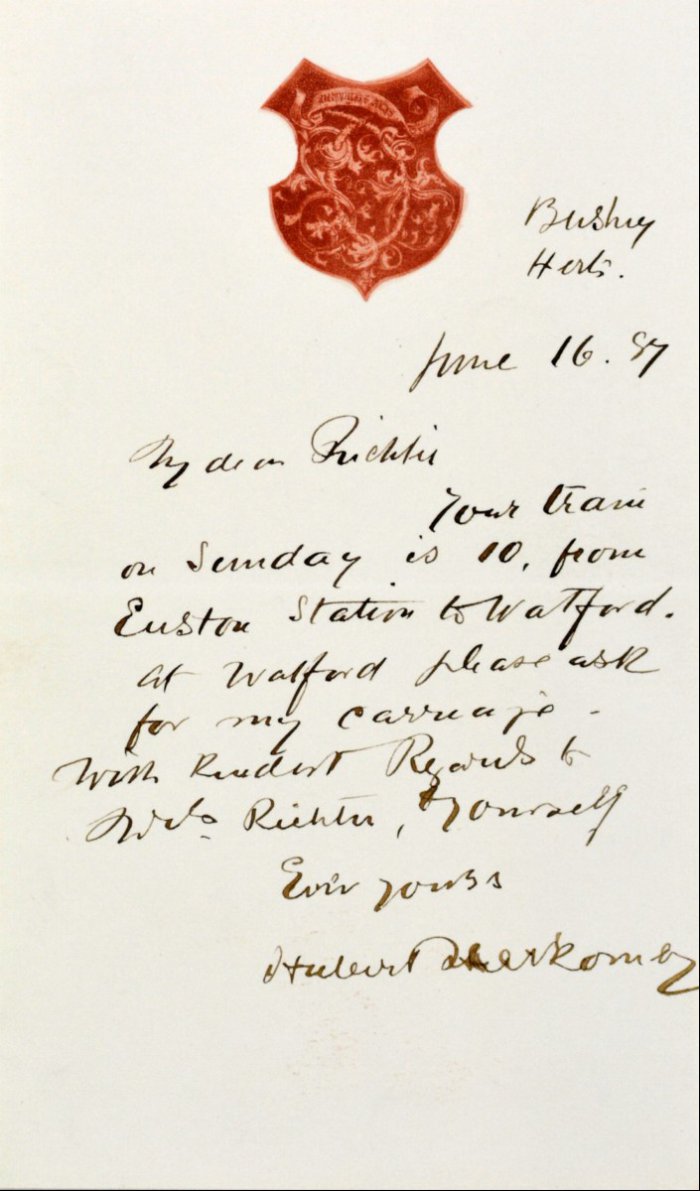 Bushey
Herts.
June 16. 87
My dear Richter
Your train
on Sunday is 10, from
Euston Station to Watford.
At Watford please ask
for my carriage -
With kindest Regards to
Mrs Richter, & yourself
Ever yours
Hubert Herkomer